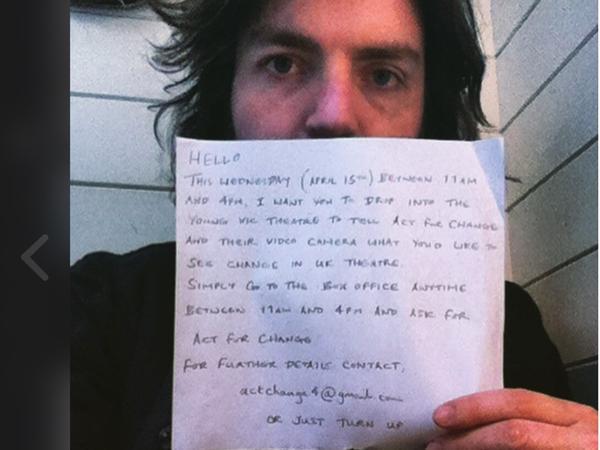 HELLO
THIS WEDNESDAY (APRIL 15TH) BETWEEN 11AM
AND 4PM, I WANT YOU TO DROP INTO THE
YOUNG VIC THEATRE TO TELL ACT FOR CHANGE
AND THEIR VIDEO CAMERA WHAT YOU'D LIKE TO
SEE CHANGE IN UK THEATRE.
SIMPLY GO TO THE BOX OFFICE ANYTIME
BETWEEN 11AM AND 4PM AND ASK FOR
ACT FOR CHANGE
FOR FURTHER DETAILS CONTACT,
actchange4@gmail.com
OR JUST TURN UP